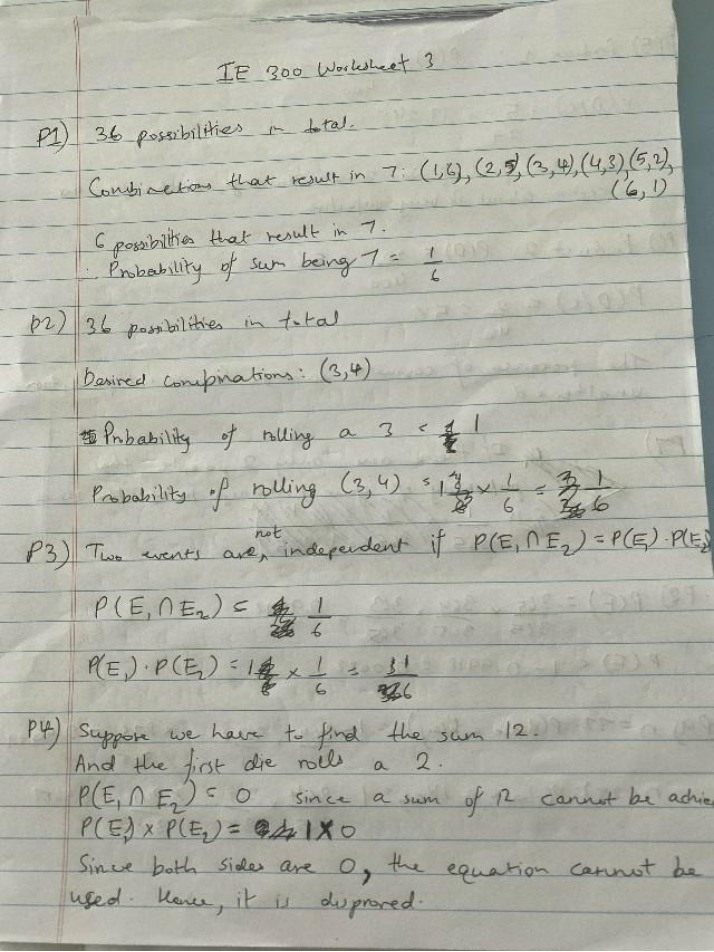 IE 300 Worksheet 3
P1) 36 possibilities in total.
Combinations that result in 7: (1,6), (2,5), (3,4), (4,3), (5,2),
(6,1)
6 possibilities that result in 7.
∴ Probability of sum being 7 = 1/6
P2) 36 possibilities in total
Desired combinations: (3,4)
Probability of rolling a 3 = 1
Probability of rolling (3,4) = 1 × 1/6 = 1/6
P3) Two events are not independent if P(E₁∩E₂) = P(E₁)·P(E₂)
P(E₁∩E₂) = 1/6
P(E₁)·P(E₂) = 1 × 1/6 = 1/6
P4) Suppose we have to find the sum 12.
And the first die rolls a 2.
P(E₁∩E₂) = 0 since a sum of 12 cannot be achie
P(E₁) × P(E₂) = 1×0
Since both sides are 0, the equation cannot be
used. Hence, it is disproved.